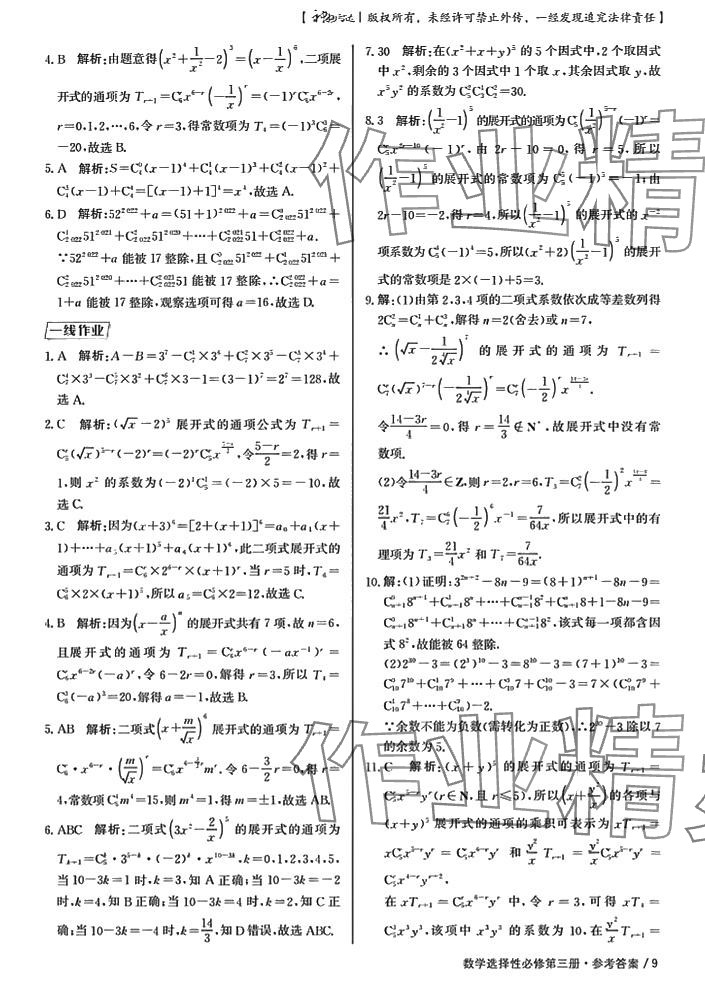 | 版权所有，未经许可禁止外传，一经发现追究法律责任】
4. B　解析：由题意得(x²+1/x²-2)³=(x-1/x)⁶，二项展
开式的通项为 T_{r+1}=C₆^r x^{6-r}(-1/x)^r=(-1)^r C₆^r x^{6-2r}，
r=0,1,2,…,6，令 r=3，得常数项为 T₄=(-1)³C₆³=
-20，故选 B.
5. A　解析：S=C₄⁰(x-1)⁴+C₄¹(x-1)³+C₄²(x-1)²+
C₄³(x-1)+C₄⁴=[(x-1)+1]⁴=x⁴，故选 A.
6. D　解析：52^{2022}+a=(51+1)^{2022}+a=C_{2022}^0 51^{2022}+
C_{2022}^1 51^{2021}+C_{2022}^2 51^{2020}+…+C_{2022}^{2021}51+C_{2022}^{2022}+a.
∵52^{2022}+a 能被 17 整除，且 C_{2022}^0 51^{2022}+C_{2022}^1 51^{2021}+
C_{2022}^2 51^{2020}+…+C_{2022}^{2021}51 能被 17 整除，∴C_{2022}^{2022}+a=
1+a 能被 17 整除，观察选项可得 a=16，故选 D.
一线作业
1. A　解析：A-B=3⁷-C₇¹×3⁶+C₇²×3⁵-C₇³×3⁴+
C₇⁴×3³-C₇⁵×3²+C₇⁶×3-1=(3-1)⁷=2⁷=128，故
选 A.
2. C　解析：(√x-2)⁵ 展开式的通项公式为 T_{r+1}=
C₅^r(√x)^{5-r}(-2)^r=(-2)^r C₅^r x^{(5-r)/2}，令(5-r)/2=2，得 r=
1，则 x² 的系数为(-2)¹C₅¹=(-2)×5=-10，故
选 C.
3. C　解析：因为(x+3)⁶=[2+(x+1)]⁶=a₀+a₁(x+
1)+…+a₅(x+1)⁵+a₆(x+1)⁶，此二项式展开式的
通项为 T_{r+1}=C₆^r×2^{6-r}×(x+1)^r，当 r=5 时，T₆=
C₆⁵×2×(x+1)⁵，所以 a₅=C₆⁵×2=12，故选 C.
4. B　解析：因为(x-a/x)^n 的展开式共有 7 项，故 n=6，
且展开式的通项为 T_{r+1}=C₆^r x^{6-r}(-ax⁻¹)^r=
C₆^r x^{6-2r}(-a)^r，令 6-2r=0，解得 r=3，所以 T₄=
C₆³(-a)³=20，解得 a=-1，故选 B.
5. AB　解析：二项式(x+m/√x)⁶ 展开式的通项为 T_{r+1}=
C₆^r·x^{6-r}·(m/√x)^r=C₆^r x^{6-3/2r}m^r，令 6-3/2r=0，得 r=
4，常数项C₆⁴m⁴=15，则 m⁴=1，得 m=±1，故选 AB.
6. ABC　解析：二项式(3x²-2/x)⁵ 的展开式的通项为
T_{k+1}=C₅^k·3^{5-k}·(-2)^k·x^{10-3k}，k=0,1,2,3,4,5，
当 10-3k=1 时，k=3，知 A 正确；当 10-3k=-2
时，k=4，知 B 正确；当 10-3k=4 时，k=2，知 C 正
确；当 10-3k=-4 时，k=14/3，知 D 错误，故选 ABC.
7. 30　解析：在(x²+x+y)⁵ 的 5 个因式中，2 个取因式
中 x²，剩余的 3 个因式中 1 个取 x，其余因式取 y，故
x⁵y² 的系数为 C₅²C₃¹C₂²=30.
8. 3　解析：(1/x²-1)⁵ 的展开式的通项为 C₅^r(1/x²)^{5-r}(-1)^r=
C₅^r x^{2r-10}(-1)^r，由 2r-10=0，得 r=5，所以
(1/x²-1)⁵ 的展开式的常数项为 C₅⁵(-1)⁵=-1；由
2r-10=-2，得 r=4，所以(1/x²-1)⁵ 的展开式的 x⁻²
项系数为 C₅⁴(-1)⁴=5，所以(x²+2)(1/x²-1)⁵ 的展开
式的常数项是 2×(-1)+5=3.
9. 解：(1)由第 2,3,4 项的二项式系数依次成等差数列得
2C_n²=C_n¹+C_n³，解得 n=2(舍去)或 n=7，
∴(√x-1/(2∜x))⁷ 的展开式的通项为 T_{r+1}=
C₇^r(√x)^{7-r}(-1/(2∜x))^r=C₇^r(-1/2)^r x^{(14-3r)/4}.
令(14-3r)/4=0，得 r=14/3∉N*，故展开式中没有常
数项.
(2)令(14-3r)/4∈Z，则 r=2，r=6，T₃=C₇²(-1/2)²x^{(14-6)/4}=
21/4x²，T₇=C₇⁶(-1/2)⁶x⁻¹=7/64x，所以展开式中的有
理项为 T₃=21/4x² 和 T₇=7/64x.
10. 解：(1)证明：3^{2n+2}-8n-9=(8+1)^{n+1}-8n-9=
C_{n+1}^0 8^{n+1}+C_{n+1}^1 8^n+…+C_{n+1}^{n-1}8²+C_{n+1}^n 8+1-8n-9=
C_{n+1}^0 8^{n+1}+C_{n+1}^1 8^n+…+C_{n+1}^{n-1}8²，该式每一项都含因
式 8²，故能被 64 整除.
(2)2³⁰-3=(2³)¹⁰-3=8¹⁰-3=(7+1)¹⁰-3=
C₁₀⁰7¹⁰+C₁₀¹7⁹+…+C₁₀⁹7+C₁₀¹⁰-3=7×(C₁₀⁰7⁹+
C₁₀¹7⁸+…+C₁₀⁹)-2.
∵余数不能为负数(需转化为正数)，∴2³⁰-3 除以 7
的余数为 5.
11. C　解析：(x+y)⁵ 的展开式的通项为 T_{r+1}=
C₅^r x^{5-r}y^r(r∈N，且 r≤5)，所以(x+y²/x)的各项与
(x+y)⁵ 展开式的通项的乘积可表示为 xT_{r+1}=
xC₅^r x^{5-r}y^r=C₅^r x^{6-r}y^r 和 y²/x T_{r+1}=y²/x C₅^r x^{5-r}y^r=
C₅^r x^{4-r}y^{r+2}.
在 xT_{r+1}=C₅^r x^{6-r}y^r 中，令 r=3，可得 xT₄=
C₅³x³y³，该项中 x³y³ 的系数为 10，在 y²/x T_{r+1}=
数学选择性必修第三册·参考答案/9
作业精
作业精灵